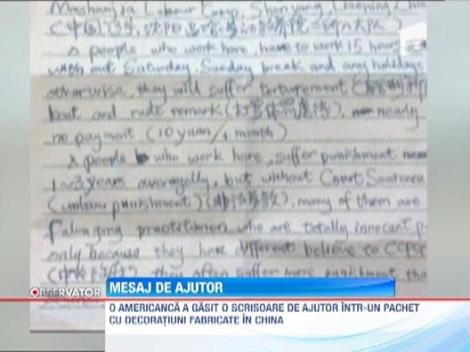 Mashanjia Labour Camp, Shenyang, Liaoning, China
people who work here, have to work 15 hours
without Saturday, Sunday break and any holidays
otherwise, they will suffer torturement
beat and rude remark nearly
no payment (10 yuan/1 month)
people who work here, suffer punishment
1~3 years averagely, but without Court Sentence
(unlaw punishment) many of them are
Falungong practitioner who are totally innocent
only because they have different believe to CCPG
they often suffer more punishment
OBSERVATOR
MESAJ DE AJUTOR
O AMERICANCĂ A GĂSIT O SCRISOARE DE AJUTOR ÎNTR-UN PACHET
CU DECORAȚIUNI FABRICATE ÎN CHINA